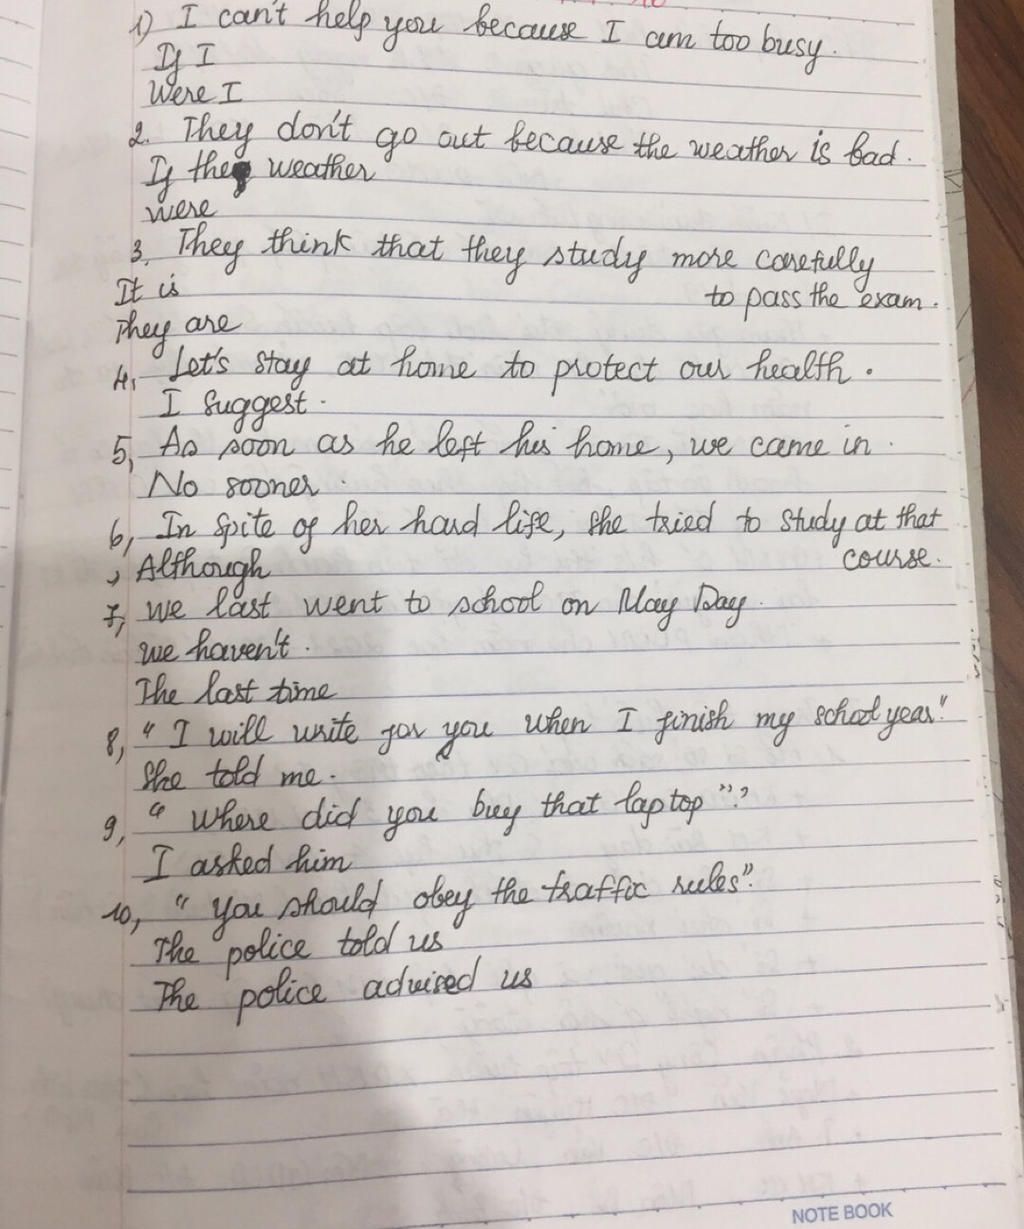 1) I can't help you because I am too busy.
If I
Were I
2. They don't go out because the weather is bad.
If the weather
were
3, They think that they study more carefully
to pass the exam.
It is
They are
4, Let's stay at home to protect our health.
I suggest.
5, As soon as he left his home, we came in.
No sooner.
6, In spite of her hard life, she tried to study at that
course.
, Although
7, we last went to school on May Day.
we haven't.
The last time
8, "I will write for you when I finish my school year".
She told me.
9, "Where did you buy that laptop"?
I asked him
10, "You should obey the traffic rules".
The police told us
The police advised us
NOTE BOOK